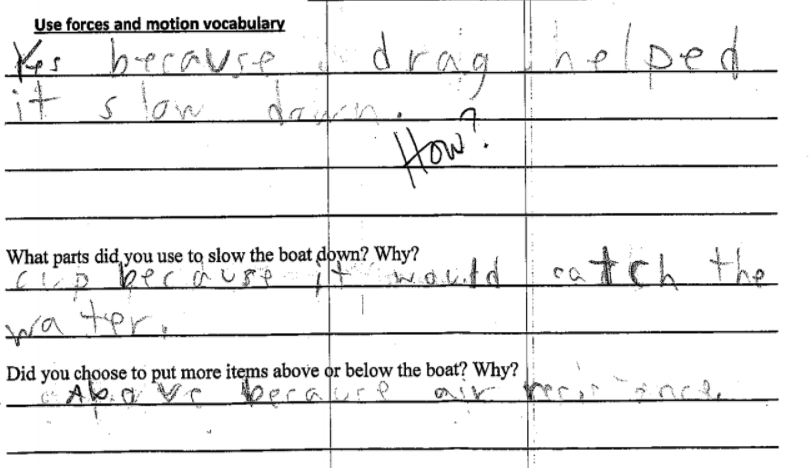 Use forces and motion vocabulary
Yes because drag helped
it slow down.
How?
What parts did you use to slow the boat down? Why?
cup because it would catch the
water.
Did you choose to put more items above or below the boat? Why?
Above because air resistance.